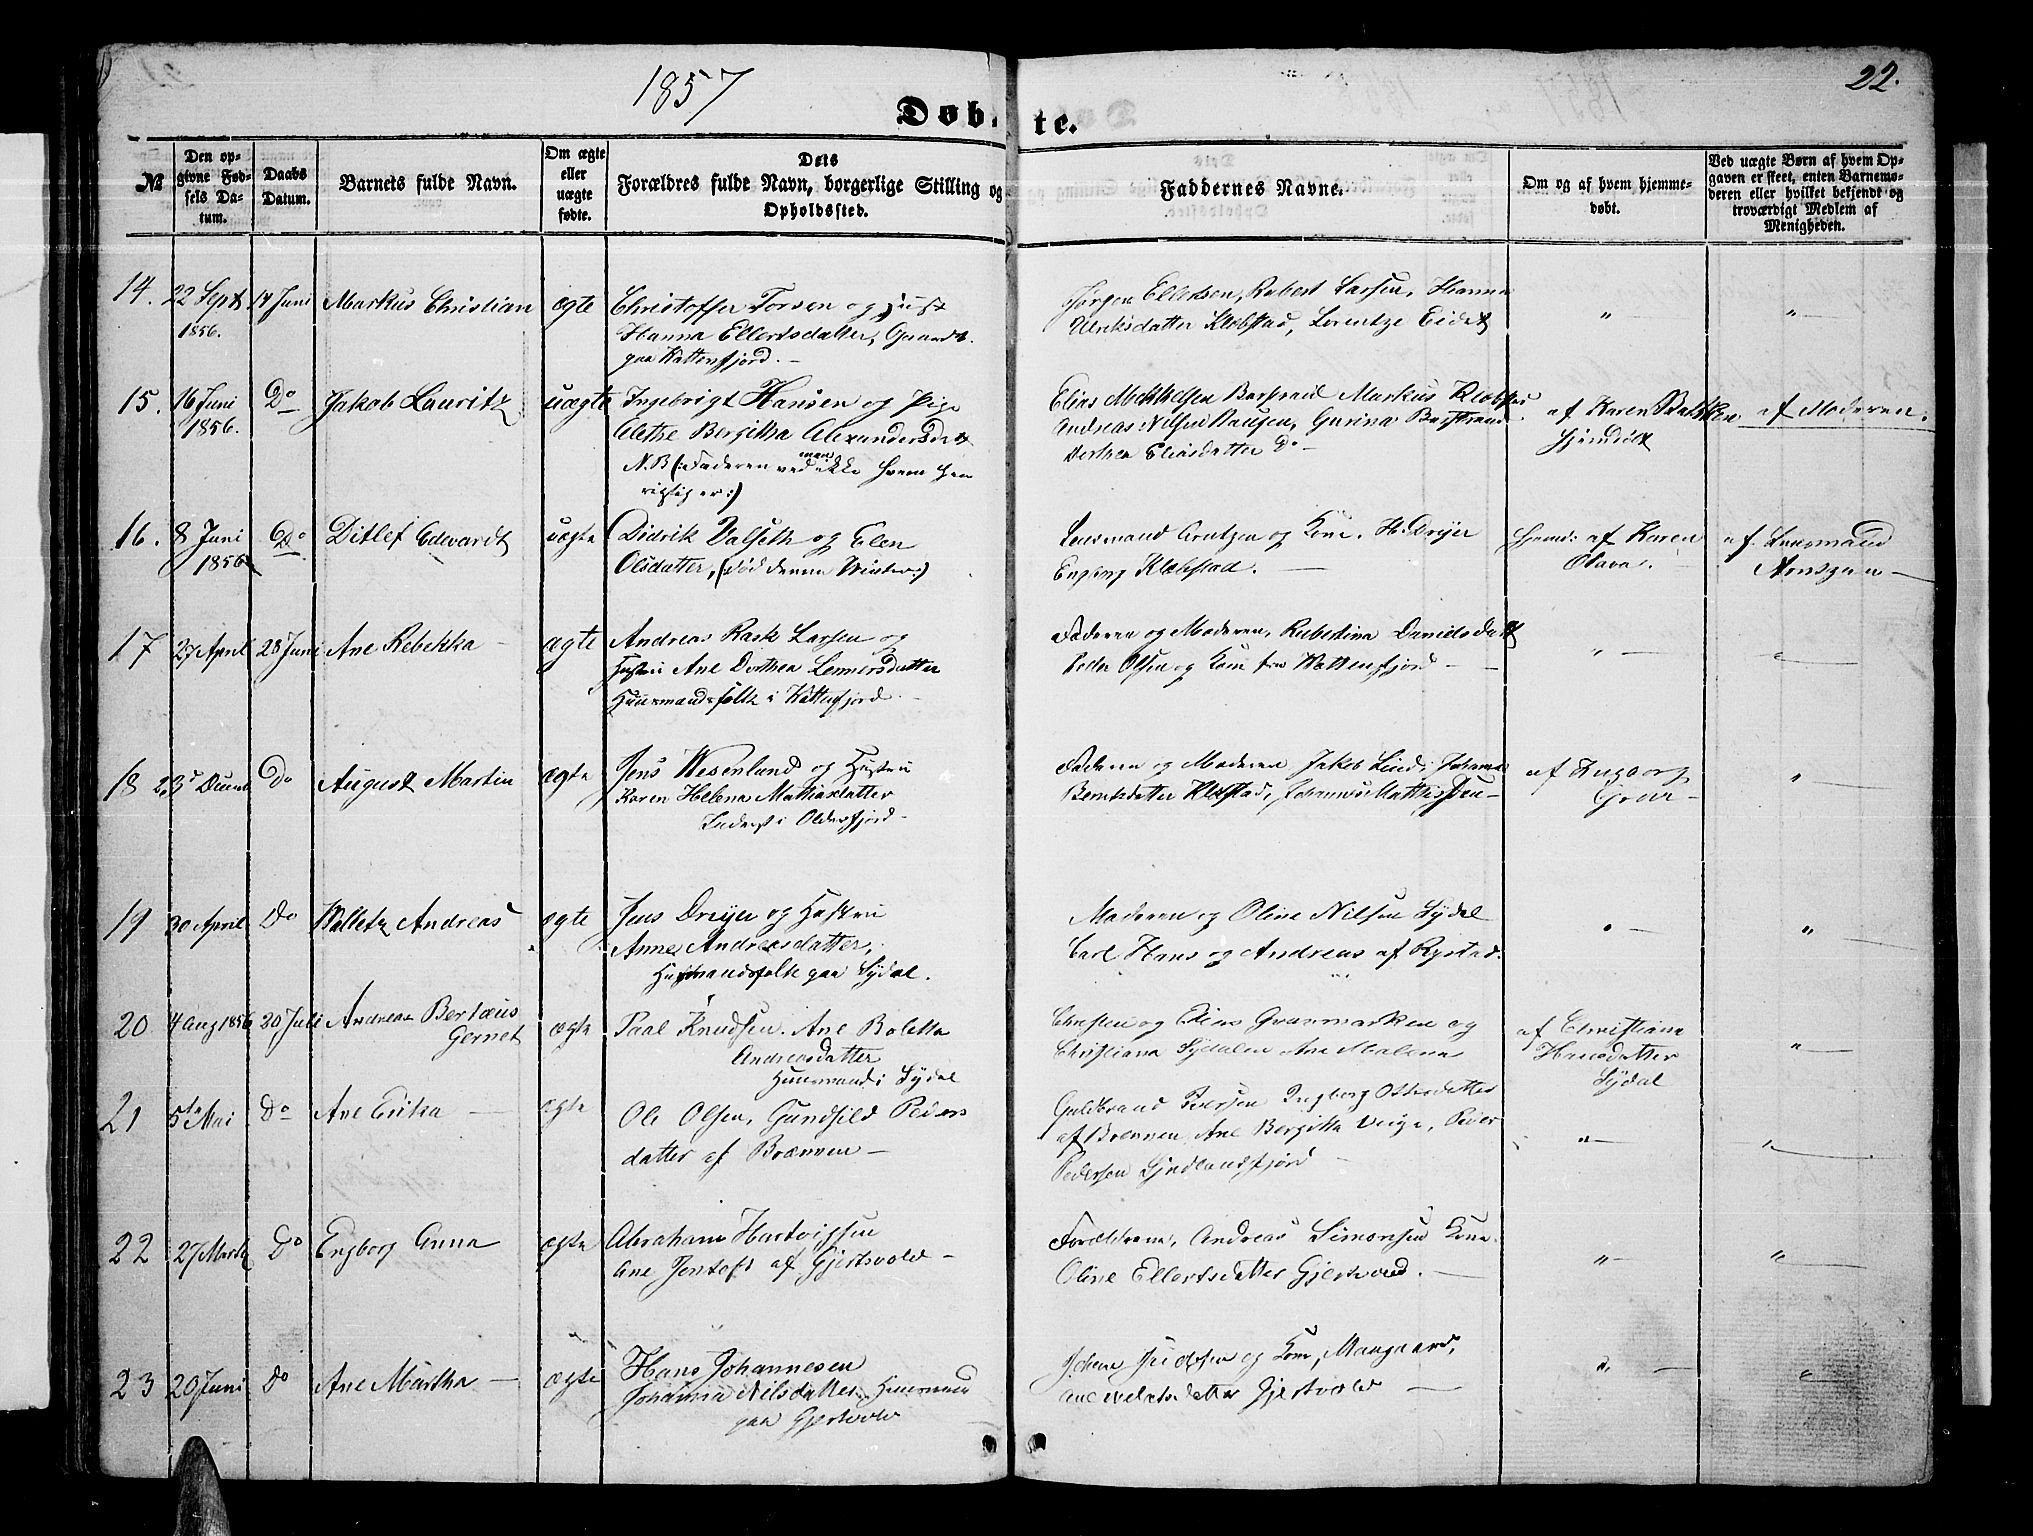 1857
22.
Døbte.
No
Den opgivne Fødsels Datum.
Daabs Datum.
Barnets fulde Navn.
Om ægte eller uægte fødte.
Dets Forældres fulde Navn, borgerlige Stilling og Opholdssted.
Faddernes Navne.
Om og af hvem hjemmedøbt.
Ved uægte Børn af hvem Opgaven er skeet, enten Barnemoderen eller hvilket bekjendt og troværdigt Medlem af Menigheden.
14. 22 Sept 1856. 14 Juni Markus Christian ægte
Christoffer Torsen og
Hanna Ellertsdatter,
paa Kattenfjord.
Ellertsen, Robert Larsen, Hanna
Ulriksdatter Klobstad, Lorentze Eidet
15. 16 Juni 1856. Do Jakob Lauritz uægte
Ingebrigt Hansen og Pige
Alethe Bergitha Alexandersdtr
N.B (: Faderen ved man ikke hvem den
rigtig er:)
Elias Markus
Andreas Nilsen Gurina
Dorthea Eliasdatter Do
af Karen
hjemdøbt
af Moderen.
16. 8 Juni 1856 Do Ditlef Edevardt uægte
Didrik Valseth og Elen
Olsdatter, (død denne Winter:)
Lensmand Arntzen og Kone, H. Dreyer
Engborg Klobstad.
hjemd: af Karen
Olava.
af Lensmand
17 27 April 28 Juni Ane Rebekka ægte
Andreas Rask Larsen og
Hustru Ane Dorthea Lennersdatter
Huusmandsfolk i Kattenfjord
Faderen og Moderen, Rubertina Davidsdatt
Peder Olsen og Kone fra Kattenfjord
18 23d Decemb Do August Martin ægte
Jens Wesenlund og Hustru
Karen Helena Mathiasdatter
Inderst i Oldersfjord
Faderen og Moderen Jakob Lind, Johanna
Berntsdatter Klobstad, Johannes
af Ingborg
19 30 April Do Andreas ægte
Jens Dreyer og Hustru
Anne Andreasdatter,
Husmandsfolk paa Sydal.
Moderen og Oline Nilsen Sydal
Carl Hans og Andreas af Rystad.
20 4 Aug 1856 20 Juli Andreas Bertæus
Gernet ægte
Paal Knudsen. Ane Boletta
Andreasdatter
Huusmand i Sydal
Christen og Elias Grunmarken og
Christiana Sydalen Ane Malena
af Christiana
Hansdatter
Sydal
21 5te Mai Do Ane Erika ægte
Ole Olsen, Gundhild Peders
datter af Brennen
Guldbrand Iversen Ingborg Ottersdatter
af Brennen, Ane Bergitta Peder
Pedersen
22 27 Marts Do Engborg Anna ægte
Abraham Hartvigsen
Ane Jentoft af Gjertsvold
Forældrene, Andreas Simonsen Kone
Oline Ellertsdatter Gjertsvold.
23 20 Juni do Ane Martha ægte
Hans Johannesen
Johanna Nilsdatter, Huusmand
paa Gjertsvold
Johan og Kone, Maagaard,
datter Gjertsvold